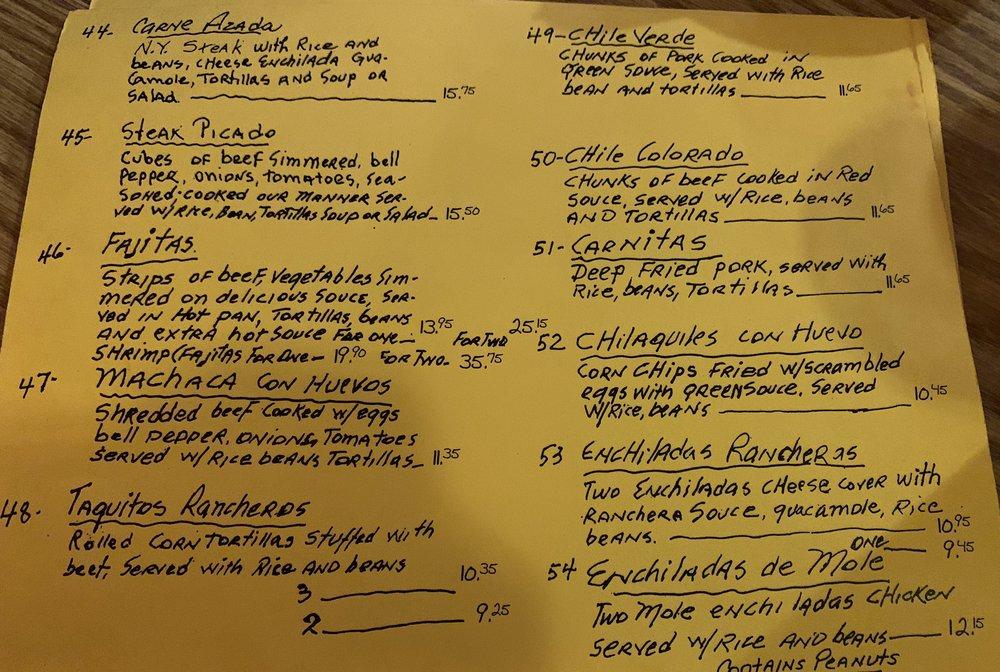 44- Carne Azada
N.Y. Steak with Rice and
beans, cheese Enchilada Gua-
camole, Tortillas and Soup or
Salad. 15.75
45- Steak Picado
Cubes of beef Simmered, bell
pepper, onions, tomatoes, sea-
soned, cooked our manner ser-
ved w/Rice, Bean, Tortillas Soup or Salad 15.50
46- Fajitas
Strips of beef, vegetables sim-
mered on delicious souce, ser-
ved in Hot pan, Tortillas, beans
and extra hot souce For one- 13.95 For Two 25.15
Shrimp (Fajitas For One- 19.90 For Two- 35.75
47- Machaca con Huevos
Shredded beef cooked w/eggs
bell pepper, onions, Tomatoes
served w/Rice beans Tortillas 11.35
48- Taquitos Rancheros
Rolled corn tortillas stuffed with
beef, served with Rice and beans
3 10.35
2 9.25
49- Chile Verde
Chunks of pork cooked in
green souce, served with Rice
bean and tortillas 11.65
50- Chile Colorado
Chunks of beef cooked in Red
souce, served w/Rice, beans
and Tortillas 11.65
51- Carnitas
Deep Fried pork, served with
Rice, beans, Tortillas 11.65
52 Chilaquiles con Huevo
Corn chips fried w/scrambled
eggs with green souce, served
w/Rice, beans 10.45
53 Enchiladas Rancheras
Two Enchiladas cheese cover with
Ranchera Souce, guacamole, Rice
beans. 10.95
one 9.45
54 Enchiladas de Mole
Two Mole enchiladas chicken
served w/Rice and beans 12.15
contains Peanuts